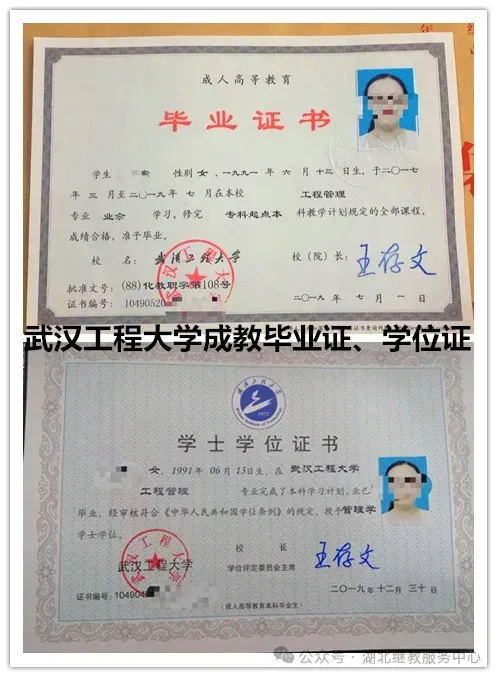 成人高等教育
毕业证书
学生 性别 女，一九九一年 六月 十三日生，于二〇一七
年 三月至二〇一九年 七月在本校 工程管理
专业 业余 学习，修完 专科起点本 科教学计划规定的全部课程，
成绩合格，准予毕业。
校 名： 武汉工程大学 校（院）长： 王存文
批准文号：(88)化教职字第108号
证书编号：10490520
二〇一九年 七月 一日
武汉工程大学成教毕业证、学位证
武汉工程大学
1972
学士学位证书
女，1991年 06月13日生。在 武汉工程大学
工程管理 专业完成了本科学习计划，业已
毕业，经审核符合《中华人民共和国学位条例》的规定，授予 管理学
学士学位。
武汉工程大学
校 长
学位评定委员会主席 王存文
证书编号：104904
二〇一九年十二月三十日
(成人高等教育本科毕业生)
公众号 · 湖北继教服务中心